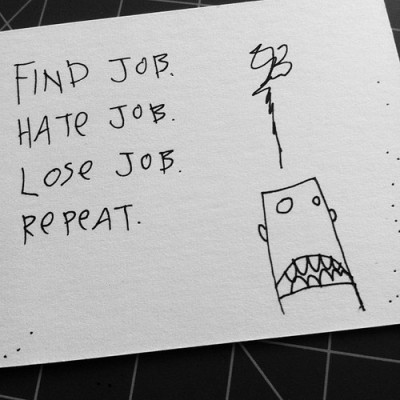 FIND JOB.
HATE JOB.
LOSE JOB.
REPEAT.